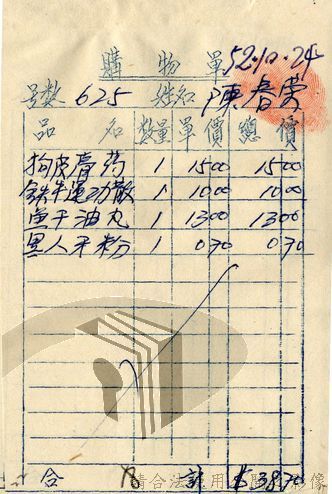 購物單 52.10.24
号数 625 姓名 陳春榮
品名 数量 單價 總價
狗皮膏药 1 1500 1500
鉄牛運功散 1 1000 1000
魚干油丸 1 1300 1300
黑人牙粉 1 070 070
合 計 $ 3870
請合法 用 影像